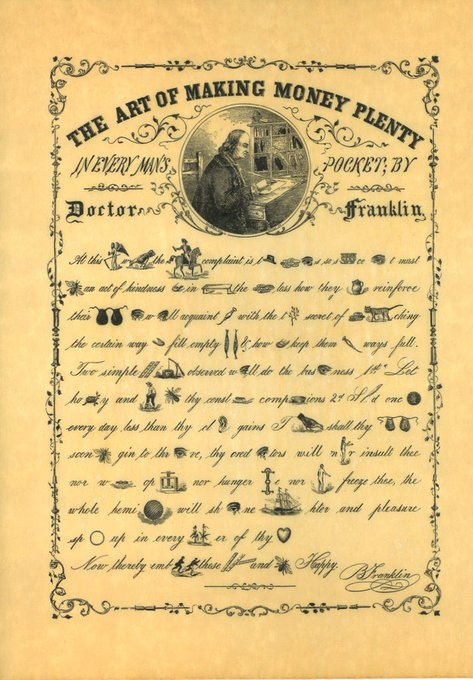 THE ART OF MAKING MONEY PLENTY
IN EVERY MAN'S POCKET; BY
Doctor Franklin
At this the complaint is t s so s ce t must
an act of kindness in the less how they reinforce
their w ll acquaint with the t secret of ching
the certain way fill empty & how keep them ways full.
Two simple observed w ll do the bus ness 1st Let
ho y and thy const comp ions 2d S d one
every day less than thy gains T shall thy
soon gin to thr ve, thy cred tors will n r insult thee
nor w op nor hunger e nor freeze thee, the
whole hemi will sh ne hter and pleasure
sp up in every er of thy
Now, thereby emb these and Happy.
B Franklin